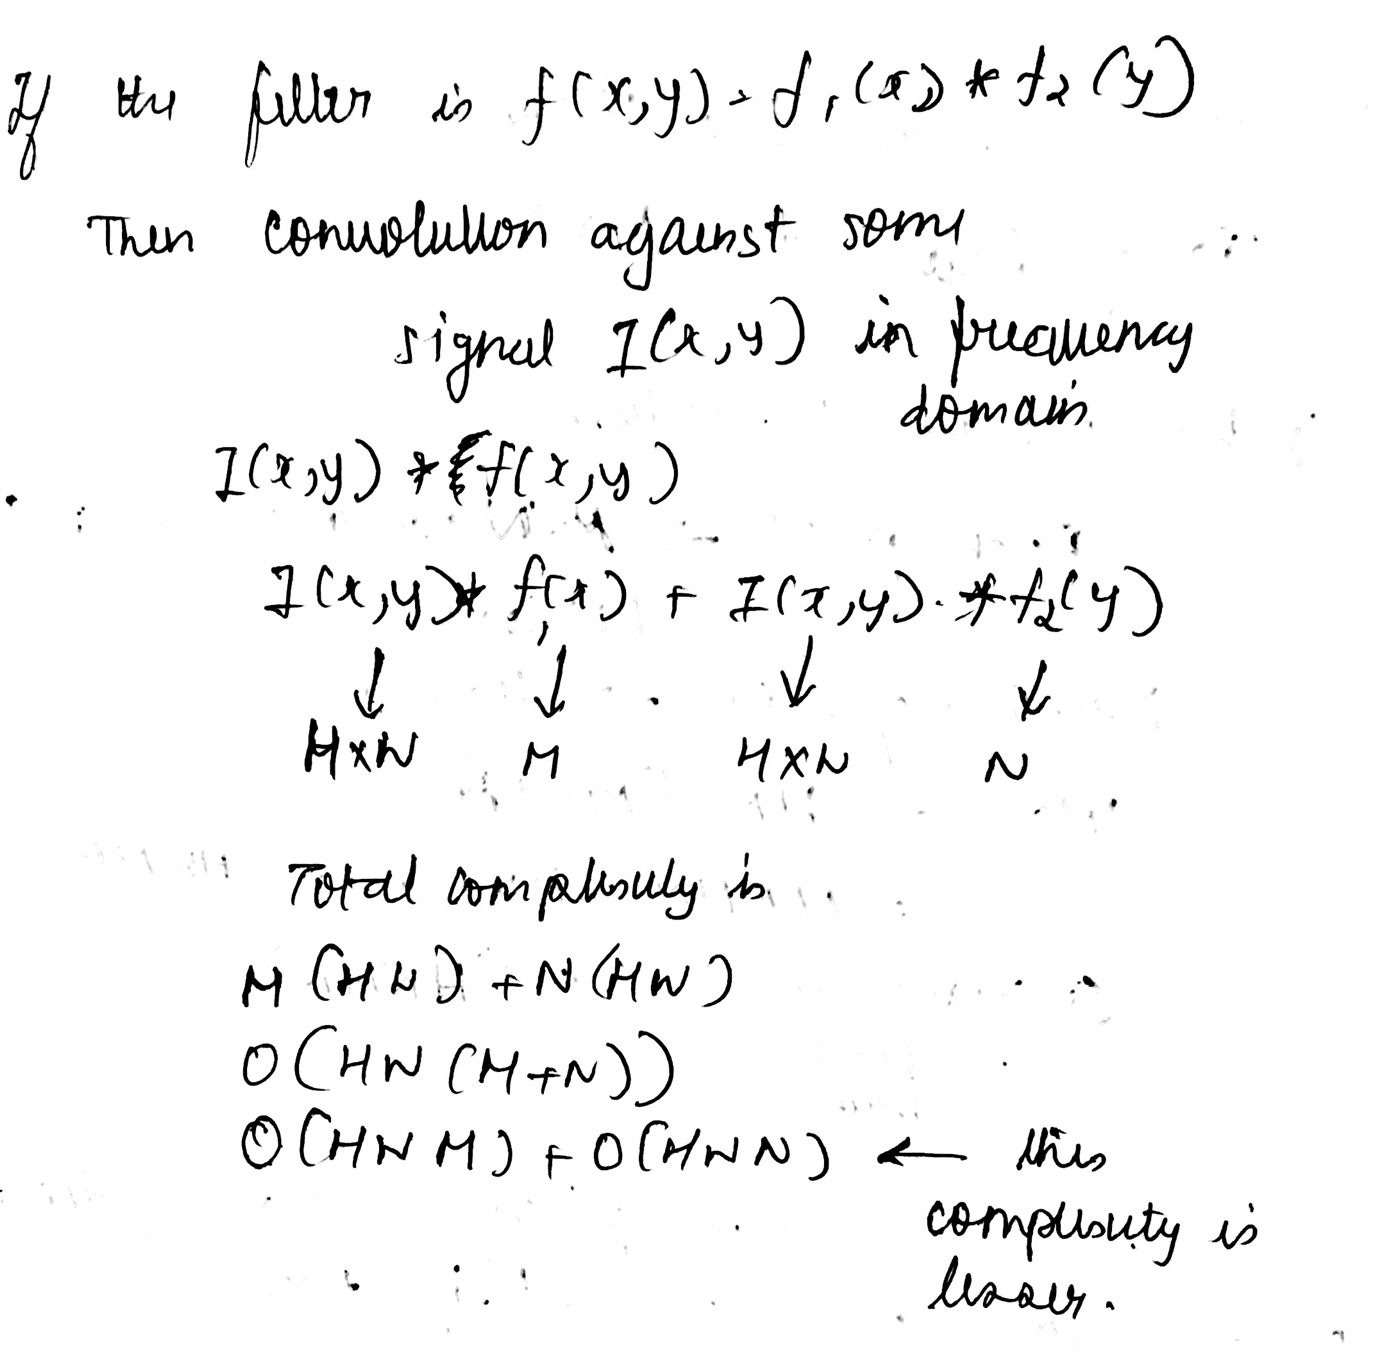 If the filter is f(x,y) = f1(x) * f2(y)
Then convolution against some
signal I(x,y) in frequency
domain.
I(x,y) * f(x,y)
I(x,y) * f1(x) + I(x,y) . * f2(y)
↓ ↓ ↓ ↓
HxW M HXW N
Total complexity is
M (HW) + N (HW)
O(HW (M+N))
O(HW M) + O(HWN) ← this
complexity is
lesser.